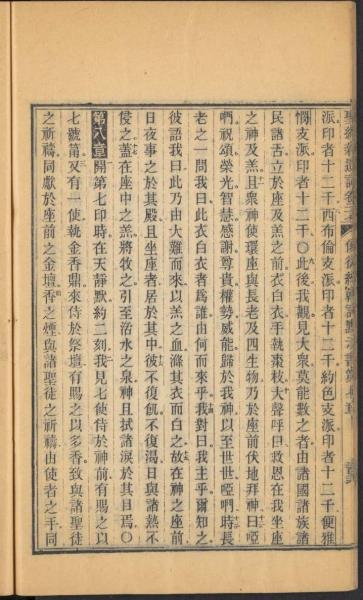 派印者十二千西布倫支派印者十二千約色支派印者十二千便雅
憫支派印者十二千〇此後我觀見大衆莫能數之者由諸國諸族諸
民諸舌立於座及羔之前衣白衣手執棗枝大聲呼曰救恩在我坐座
之神及羔且衆神使環座與長老及四生物乃於座前伏地拜神曰啞
們祝頌榮光智慧感謝尊貴權勢威能歸於我神以至世世啞們時長
老之一問我曰此衣白衣者爲誰由何而來乎我對曰我主乎爾知之
彼語我曰此乃由大難而來以羔之血滌其衣而白之故在神之座前
日夜事之於其殿且坐座者居於其中彼不復飢不復渴日與諸熱不
侵之蓋在座中之羔將牧之引至活水之泉神且拭諸淚於其目焉〇
第八章開第七印時在天靜默約二刻我見七使侍於神前有賜之以
七號筩又有一使執金香鼎來侍於祭壇有賜之以多香致與諸聖徒
之祈禱同獻於座前之金壇香之煙與諸聖徒之祈禱由使者之手同